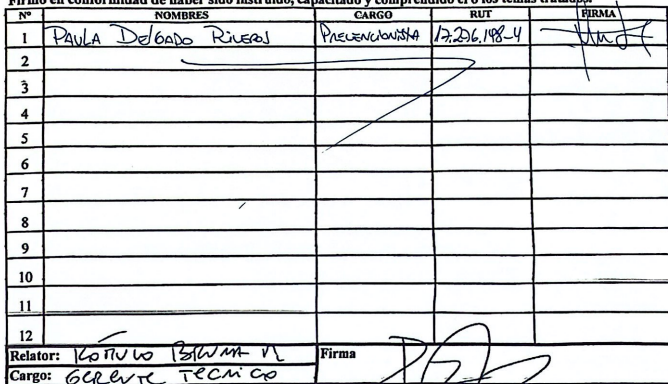 Firmo en conformidad de haber sido instruido, capacitado y comprendido el o los temas tratados.
Nº NOMBRES CARGO RUT FIRMA
1 PAULA DELGADO RIVEROS PREVENCIONISTA 17.276.198-4
2
3
4
5
6
7
8
9
10
11
12
Relator: Firma
Cargo: GERENTE TECNICO